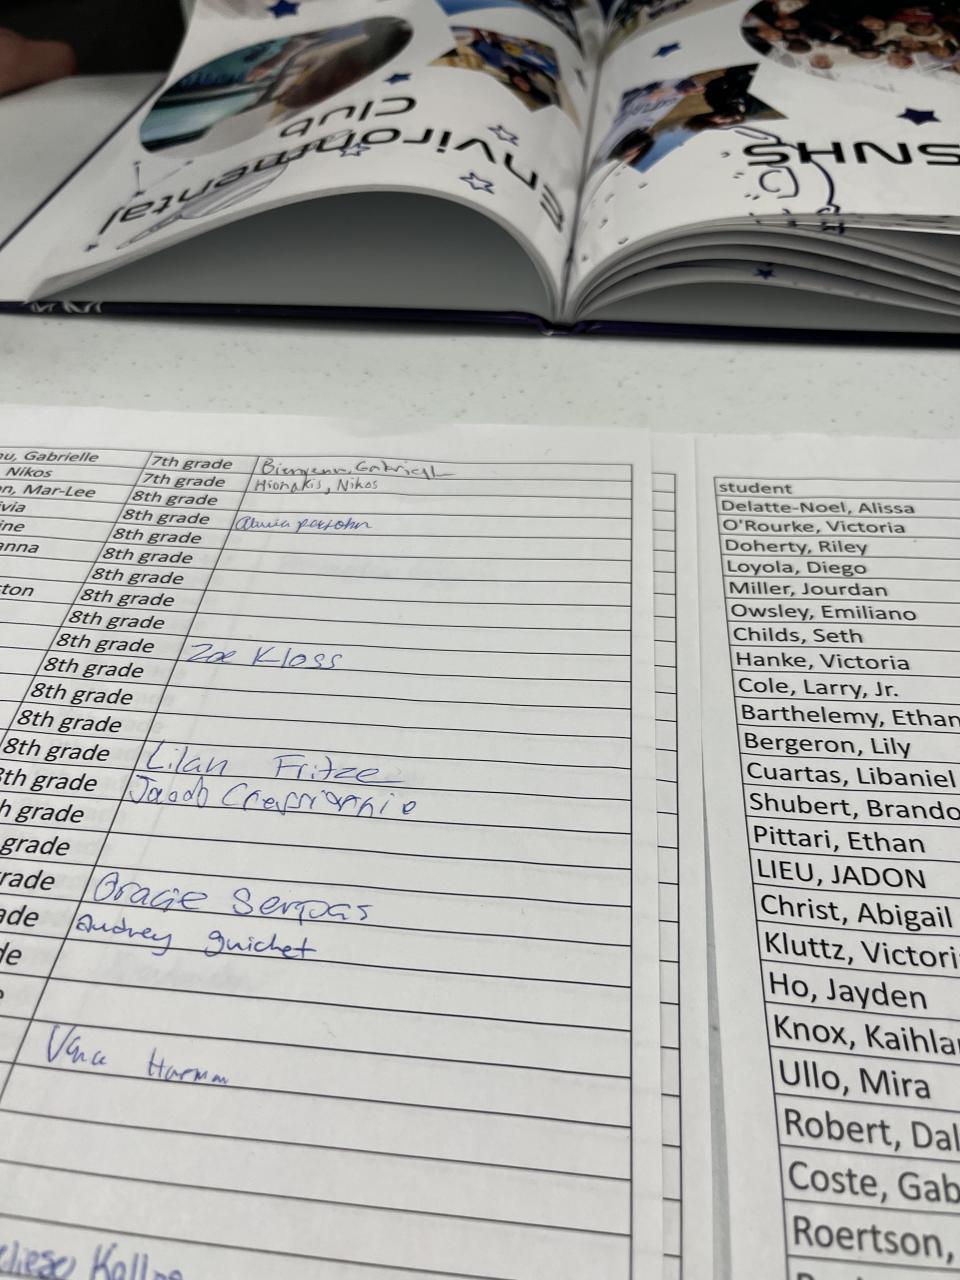 Environmental
Club
SNHS
Gabrielle 7th grade
Nikos 7th grade Hionakis, Nikos
Mar-Lee 8th grade
8th grade
8th grade
8th grade
8th grade
8th grade
8th grade
8th grade Zoe Kloss
8th grade
8th grade
8th grade
8th grade Lilan Fritze
8th grade Jacob
grade
grade
Gracie Serpas
Audrey guichet
student
Delatte-Noel, Alissa
O'Rourke, Victoria
Doherty, Riley
Loyola, Diego
Miller, Jourdan
Owsley, Emiliano
Childs, Seth
Hanke, Victoria
Cole, Larry, Jr.
Barthelemy, Ethan
Bergeron, Lily
Cuartas, Libaniel
Shubert, Brando
Pittari, Ethan
LIEU, JADON
Christ, Abigail
Kluttz, Victori
Ho, Jayden
Knox, Kaihla
Ullo, Mira
Robert, Dal
Coste, Gab
Roertson,